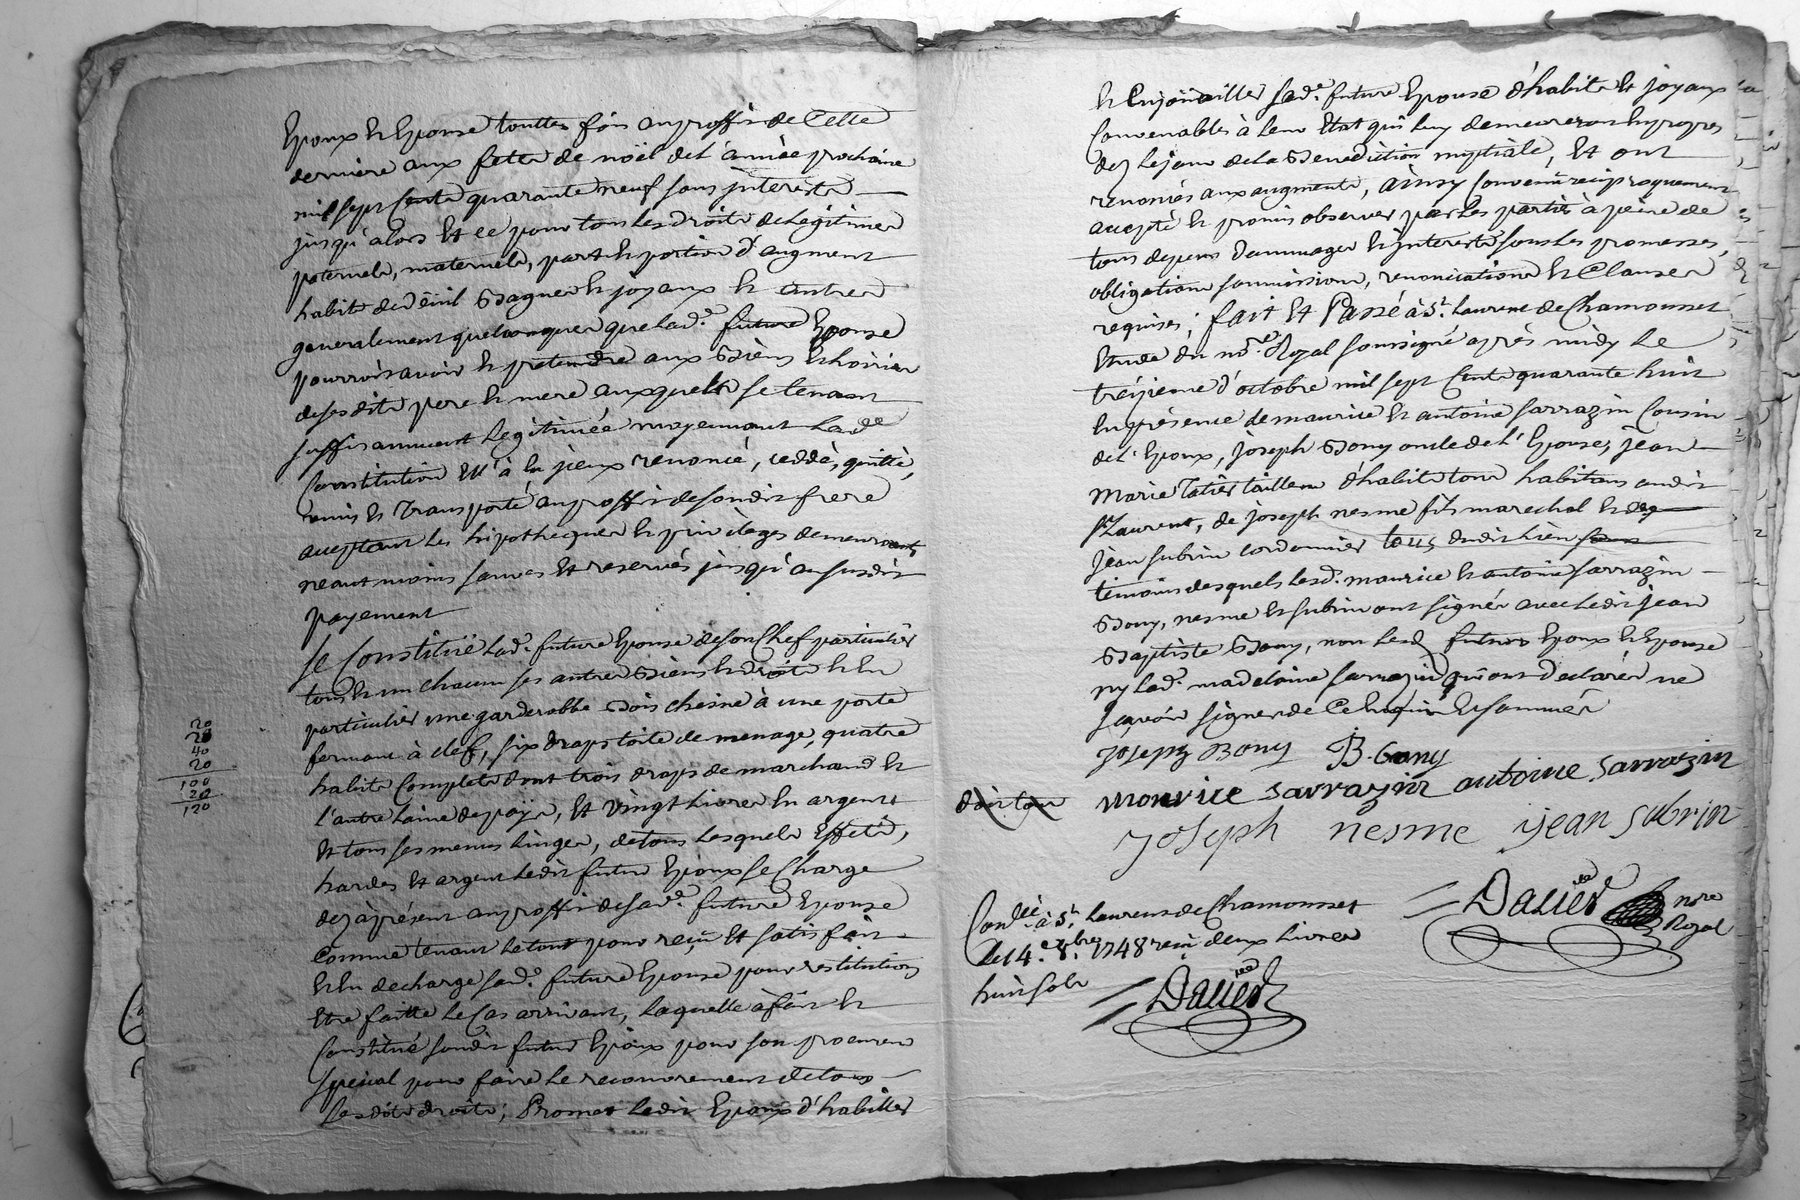 Epoux et Epouse touttes fois au proffit de Cette
derniere aux fetes de noël de l'année prochaine
mil sept Cents quarante neuf sans jnterests
jusqu'alors Et ce pour tous les droits de Legitimes
paternels, maternels, part et portion d'augment
habits de deüil Bagues et joyaux et autres
generalement quelconques que lad.e future Epouse
pourroit avoir et pretendre aux Biens Et hoiries
de ses dits pere et mere auxquels se tenant
suffisamment Legitimée moyennant Lade
Constitution Ell'à en jceux renoncé, ceddé, quitté,
remis et Transporté au proffit de sondit frere
acceptant les hipotheques et privileges demeurants
neantmoins sauves Et reservés jusqu'au susdit
payement
Se Constitüe Lad.e future Epouse de son Chef particulier
tous et un chacuns ses autres Biens et droits et En
particulier une garderobbe Bois chesne à une porte
fermant à clef, six draps toile de menage, quatre
habits Complets dont trois draps de marchand Et
l'autre Laine de païs, Et vingt Livres En argent
Et tous ses menus Linges, de tous Lesquels Effets,
hardes Et argent Ledit futur Epoux se Charge
dez à présent au proffit de sad.e future Epouse
comme tenant le tout pour reçu Et satisfait
Et En decharge sad.e future Epouse pour restitution
Etre faitte le Cas arrivant, laquelle à fait Et
Constitué sondit futur Epoux pour son procureur
special pour faire le recouvrement de tous
Lesdits droits; Promet ledit Epoux d'habiller
20
20
40
20
100
20
120
Et Enjoüailler sad.e future Epouse d'habits Et joyaux
Convenables à leur Etat qui luy demeureront En propres
dez le jour de la Benediction nuptiale, Et ont
renoncés aux augments, ainsy Convenu reciproquement
accepté et promis observer par les parties à peine de
tous depens dommages Et jnterests sous les promesses,
obligations soumissions, renonciations et Clauses
requises; fait Et Passé à St. Laurent de Chamousset
Etude du nore Royal soussigné après midy Le
treizieme d'octobre mil sept Cents quarante huit
En présence de maurice Et antoine sarrazin Cousin
de l'Epoux, joseph Bony oncle de l'Epouse, jean
Marie tailleur d'habits tous habitans audit
St Laurent, de joseph nesme fils marechal et de
jean subrin cordonnier tous dudit lieu
témoins desquels lesd. maurice et antoine sarrazin
Bony, nesme et subrin ont signés avec ledit jean
Baptiste Bony, non lesd futurs Epoux et Epouse
ny lad.e madelaine sarrazin qui ont declarés ne
sçavoir signer de Ce Enquis Et sommés
joseph Bony B. Bony
mourice sarrazin antoine sarrazin
joseph nesme jean subrin
Daiier nore
Royal
Con.llé à St. Laurent de Chamousset
le 14.e 8.bre 1748 reçu deux Livres
huit sols
Daiier